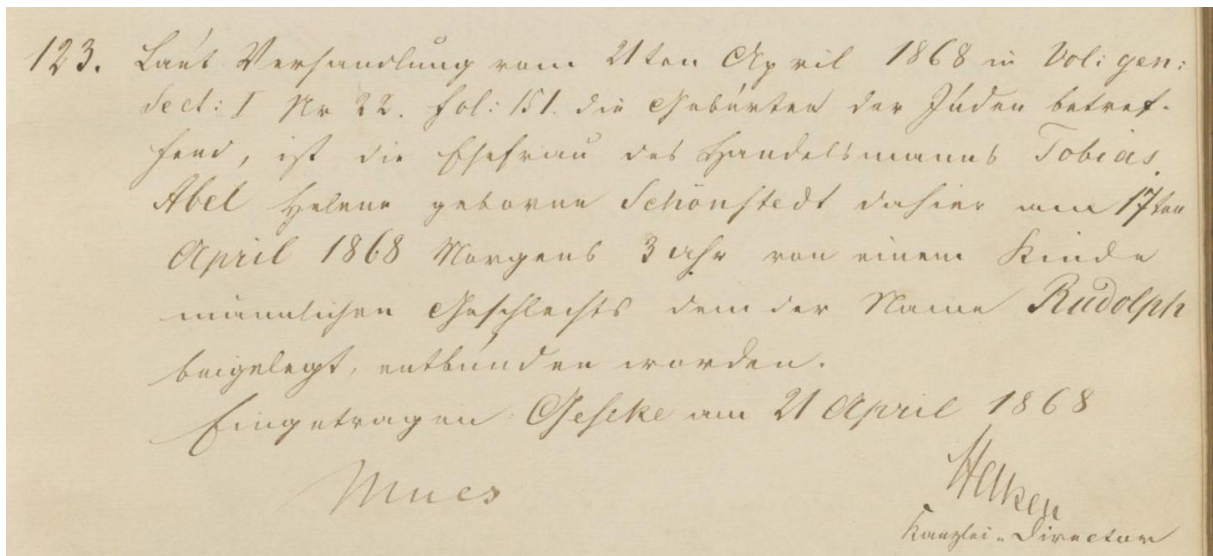 123. Laut Verhandlung vom 21ten April 1868 in Vol: gen:
Sect: I Nr 22. fol: 151. die Geburten der Juden betref-
fend, ist die Ehefrau des Handelsmanns Tobias
Abel Helene geborne Schönstedt dahier am 17ten
April 1868 Morgens 3 Uhr von einem Kinde
männlichen Geschlechts dem der Name Rudolph
beigelegt, entbunden worden.
Eingetragen Geseke am 21 April 1868
Mues
Kanzlei-Director